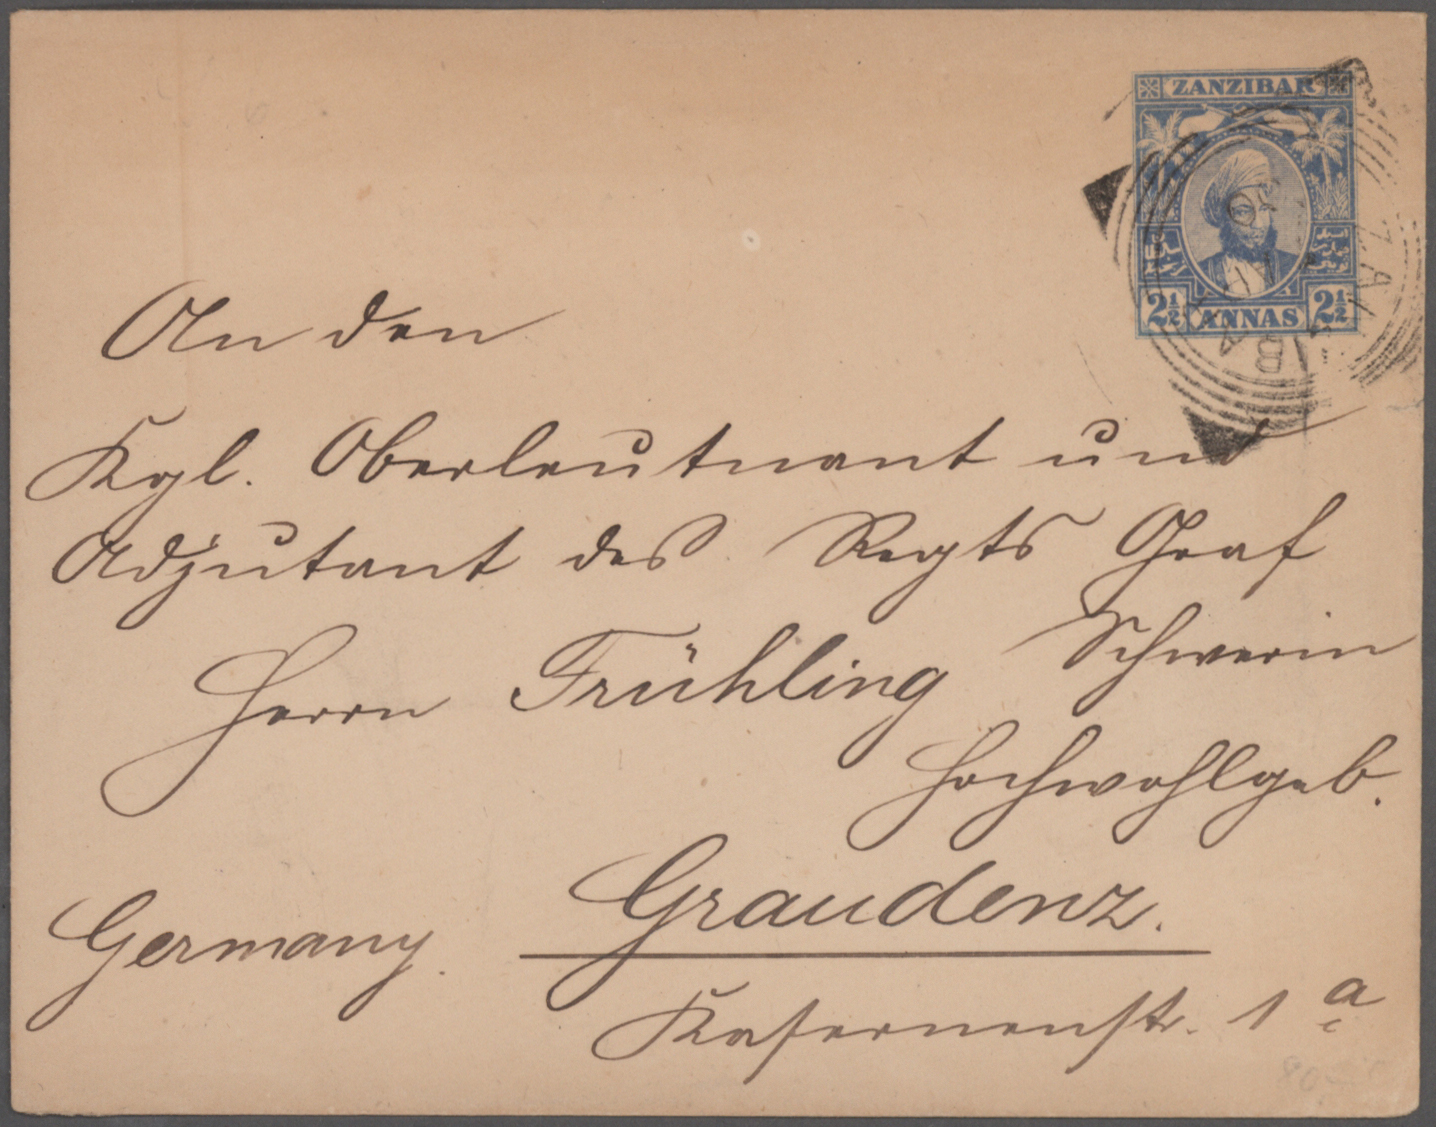 ZANZIBAR
2½ ANNAS 2½
An den
Kgl. Oberleutnant und
Adjutant des Regts Graf
Schwerin
Herrn Frühling
Hochwohlgeb.
Graudenz.
Germany.
Kasernenstr. 1a